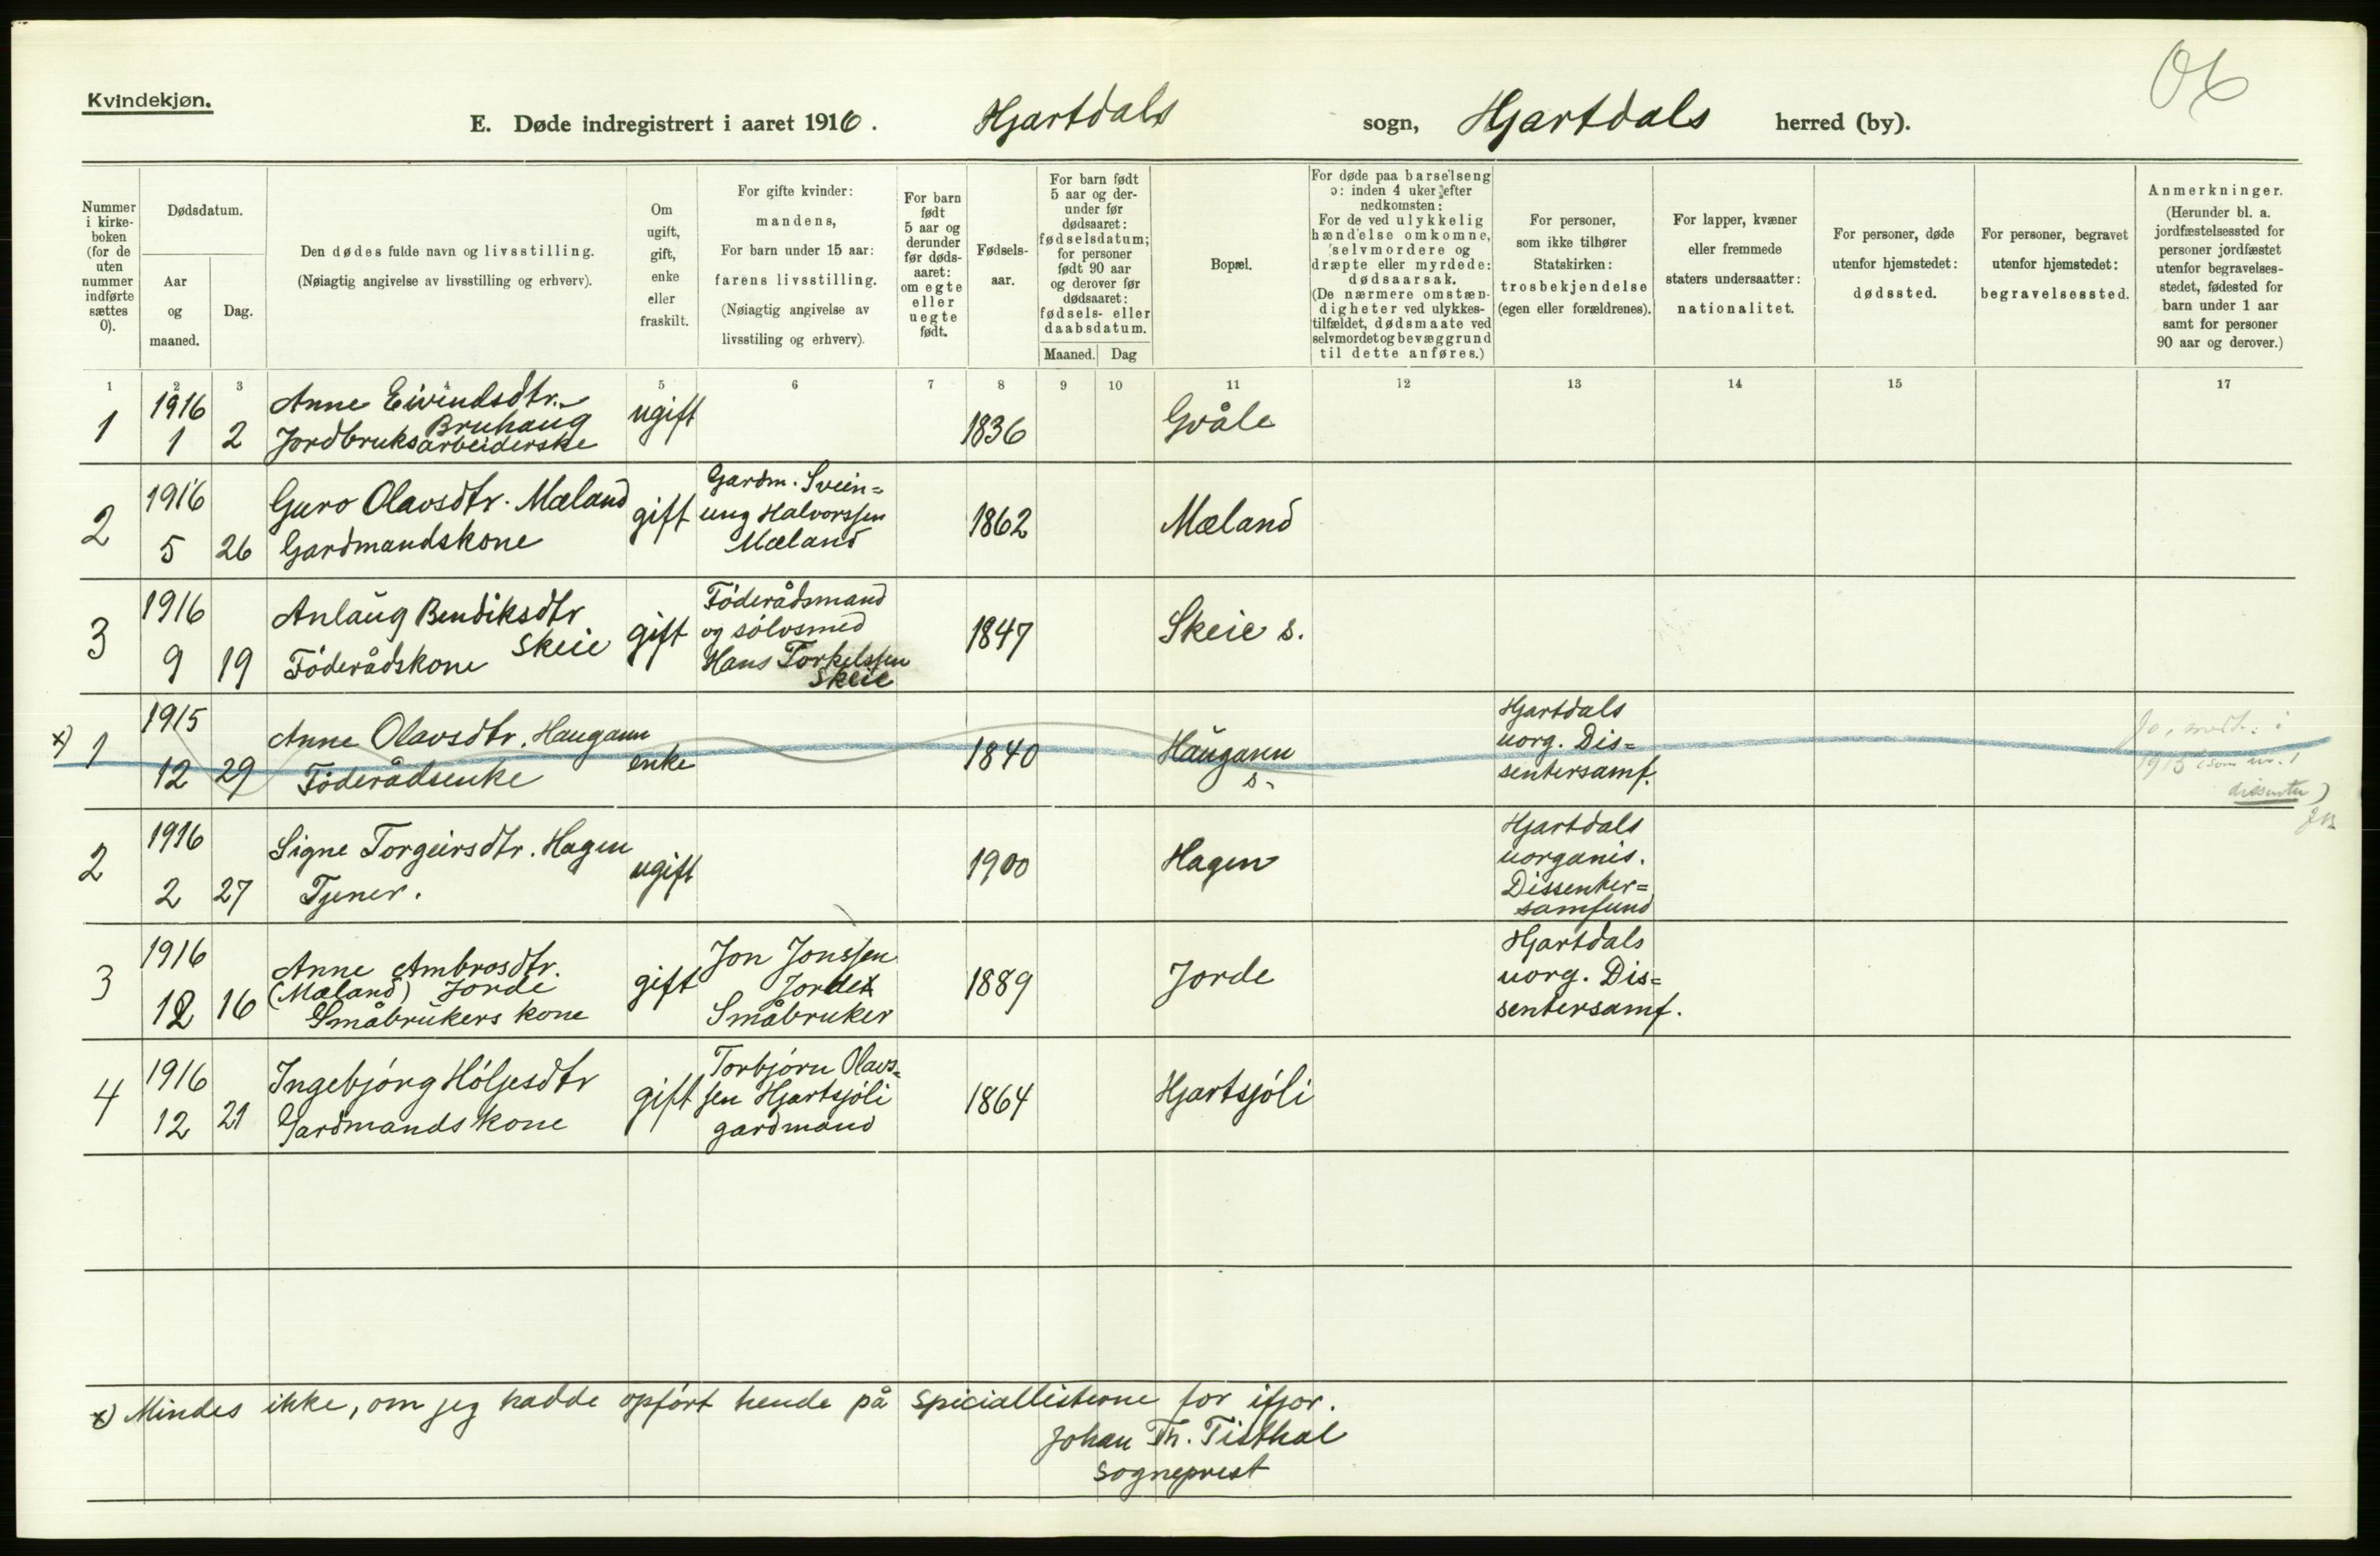 06
Kvindekjøn.
E. Døde indregistrert i aaret 1916. Hjartdals sogn, Hjartdals herred (by).
Nummer
i kirke-
boken
(for de
uten
nummer
indførte
sættes
0).
Dødsdatum.
Aar
og
maaned.
Dag.
Den dødes fulde navn og livsstilling.
(Nøiagtig angivelse av livsstilling og erhverv).
Om
ugift,
gift,
enke
eller
fraskilt.
For gifte kvinder:
mandens,
For barn under 15 aar:
farens livsstilling.
(Nøiagtig angivelse av
livsstiling og erhverv).
For barn
født
5 aar og
derunder
før døds-
aaret:
om egte
eller
uegte
født.
Fødsels-
aar.
For barn født
5 aar og der-
under før
dødsaaret:
fødselsdatum;
for personer
født 90 aar
og derover før
dødsaaret:
fødsels- eller
daabsdatum.
Maaned. Dag
Bopæl.
For døde paa barselseng
ɔ: inden 4 uker efter
nedkomsten:
For de ved ulykkelig
hændelse omkomne,
selvmordere og
dræpte eller myrdede:
dødsaarsak.
(De nærmere omstæn-
digheter ved ulykkes-
tilfældet, dødsmaate ved
selvmordet og bevæggrund
til dette anføres.)
For personer,
som ikke tilhører
Statskirken:
trosbekjendelse
(egen eller forældrenes).
For lapper, kvæner
eller fremmede
staters undersaatter:
nationalitet.
For personer, døde
utenfor hjemstedet:
dødssted.
For personer, begravet
utenfor hjemstedet:
begravelsessted.
Anmerkninger.
(Herunder bl. a.
jordfæstelsessted for
personer jordfæstet
utenfor begravelses-
stedet, fødested for
barn under 1 aar
samt for personer
90 aar og derover.)
1 2 3 4 5 6 7 8 9 10 11 12 13 14 15 17
1 1916
1 2
Anne Eivindsdtr.
Bruhaug
Jordbruksarbeiderske
ugift 1836 Gvåle
2 1916
5 26
Guro Olavsdtr. Mæland
Gardmandskone
gift
Gardm. Svein=
ung Halvorssen
Mæland
1862 Mæland
3 1916
9 19
Anlaug Bendiksdtr
Skeie
Föderådskone
gift
Föderådsmand
og sölvsmed
Hans Torkelssen
Skeie
1847 Skeie s.
x) 1 1915
12 29
Anne Olavsdtr. Haugann
Föderådsenke
enke 1840
Haugann
s.
Hjartdals
uorg. Dis=
sentersamf.
Jo, i
1915 (som nr. 1
dissenter)
2 1916
2 27
Signe Torgeirsdtr. Hagen
Tjener.
ugift 1900 Hagen
Hjartdals
uorganis.
Dissenter=
samfund
3 1916
12 16
Anne Ambrosdtr.
(Mæland) Jorde
Småbrukers kone
gift
Jon Jonssen
Jorde
Småbruker
1889 Jorde
Hjartdals
uorg. Dis=
sentersamf.
4 1916
12 21
Ingebjörg Höljesdtr
Gardmandskone
gift
Torbjörn Olavs=
sen Hjartsjöli
gardmand
1864 Hjartsjöli
x) Mindes ikke, om jeg hadde opfört hende på speciallisterne for ifjor.
Johan Th. Tisthal
sogneprest